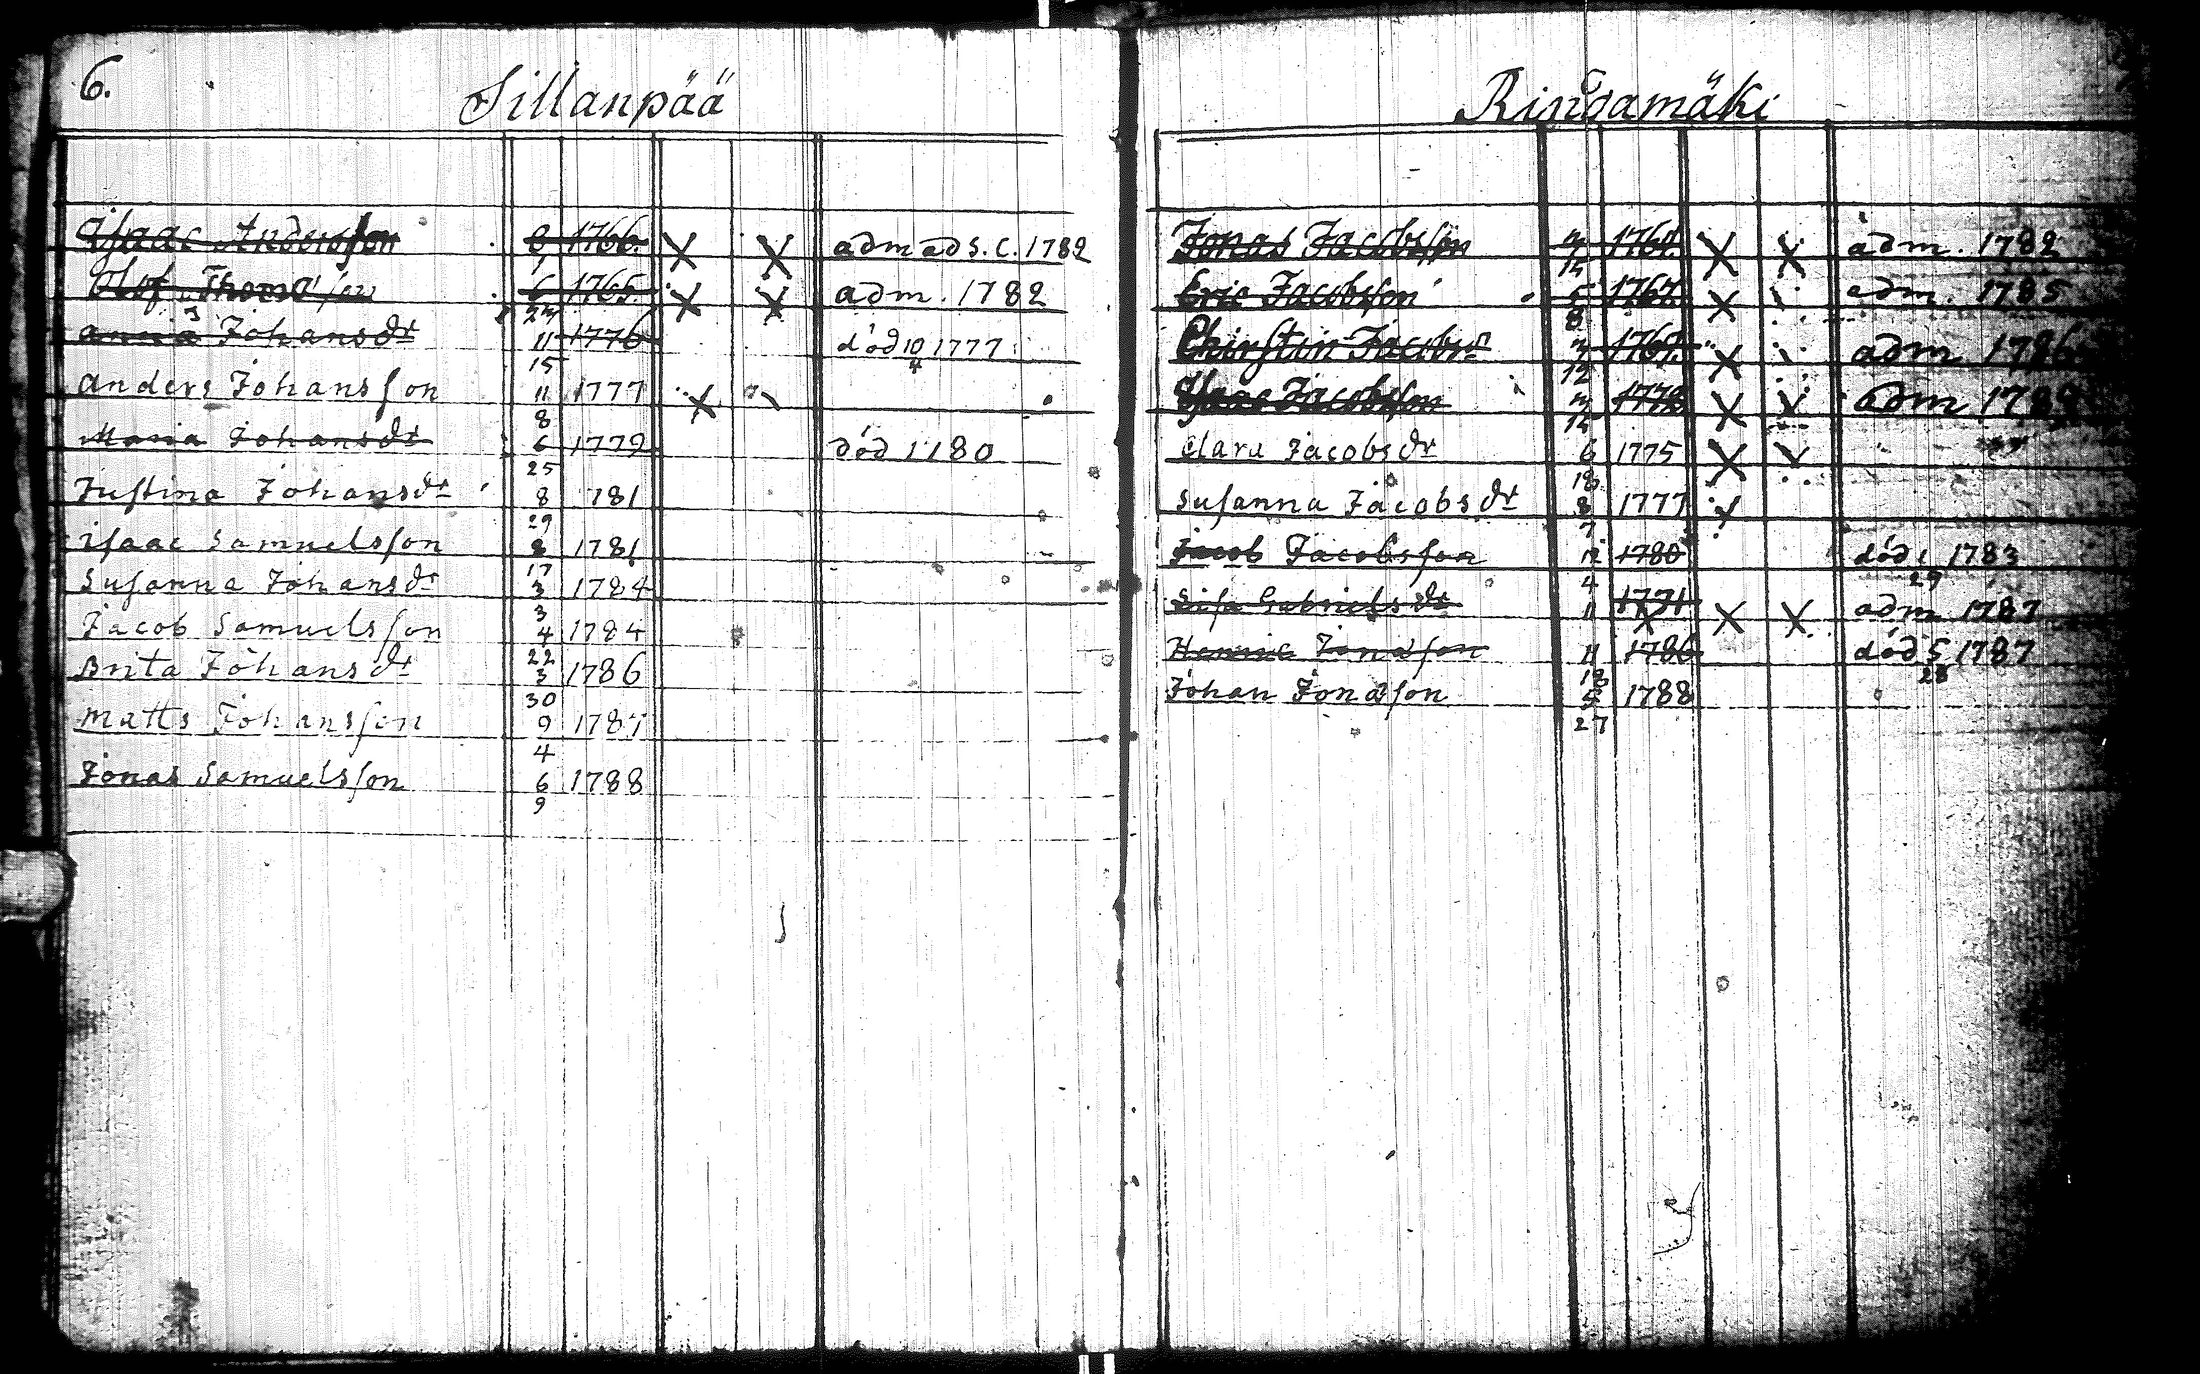 6.
Sillanpää
Isaac Andersson 8 1766. X X adm ad S. C. 1782
1
Olof Thomas'son 6 1765. X X adm. 1782
27
Anna Johansdr 11 1776 död 10 1777
15 4
Anders Johansson 11 1777 X
8
Maria Johansdr 6 1779 död 1780
25
Justina Johansdr 8 781
29
Isaac Samuelsson 8 1781
17
Susanna Johansdr 3 1784
3
Jacob Samuelsson 4 1784
22
Brita Johansdr 3 1786
30
Matts Johansson 9 1787
4
Jonas Samuelsson 6 1788
9
Ringamäki
Jonas Jacobsson X X adm. 1782
15
Eric Jacobsson 5 1767. X adm. 1785
8
Chirstin Jacobsdr 1767. X adm 1786
12
Isaac Jacobsson 1772 X X adm 1789
Clara Jacobsdr 6 1775 X X
18
Susanna Jacobsdr 8 1777
7
Jacob Jacobsson 12 1780 död 1 1783
4 29
Lisa Gabrielsdr 11 1771 X X X adm 1787
Henric Jonasson 11 1786 död 5 1787
18 28
Johan Jonasson 5 1788
27